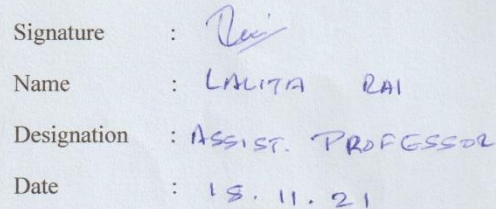 Signature : Rai
Name : LALITA RAI
Designation : ASSIST. PROFESSOR
Date : 18.11.21